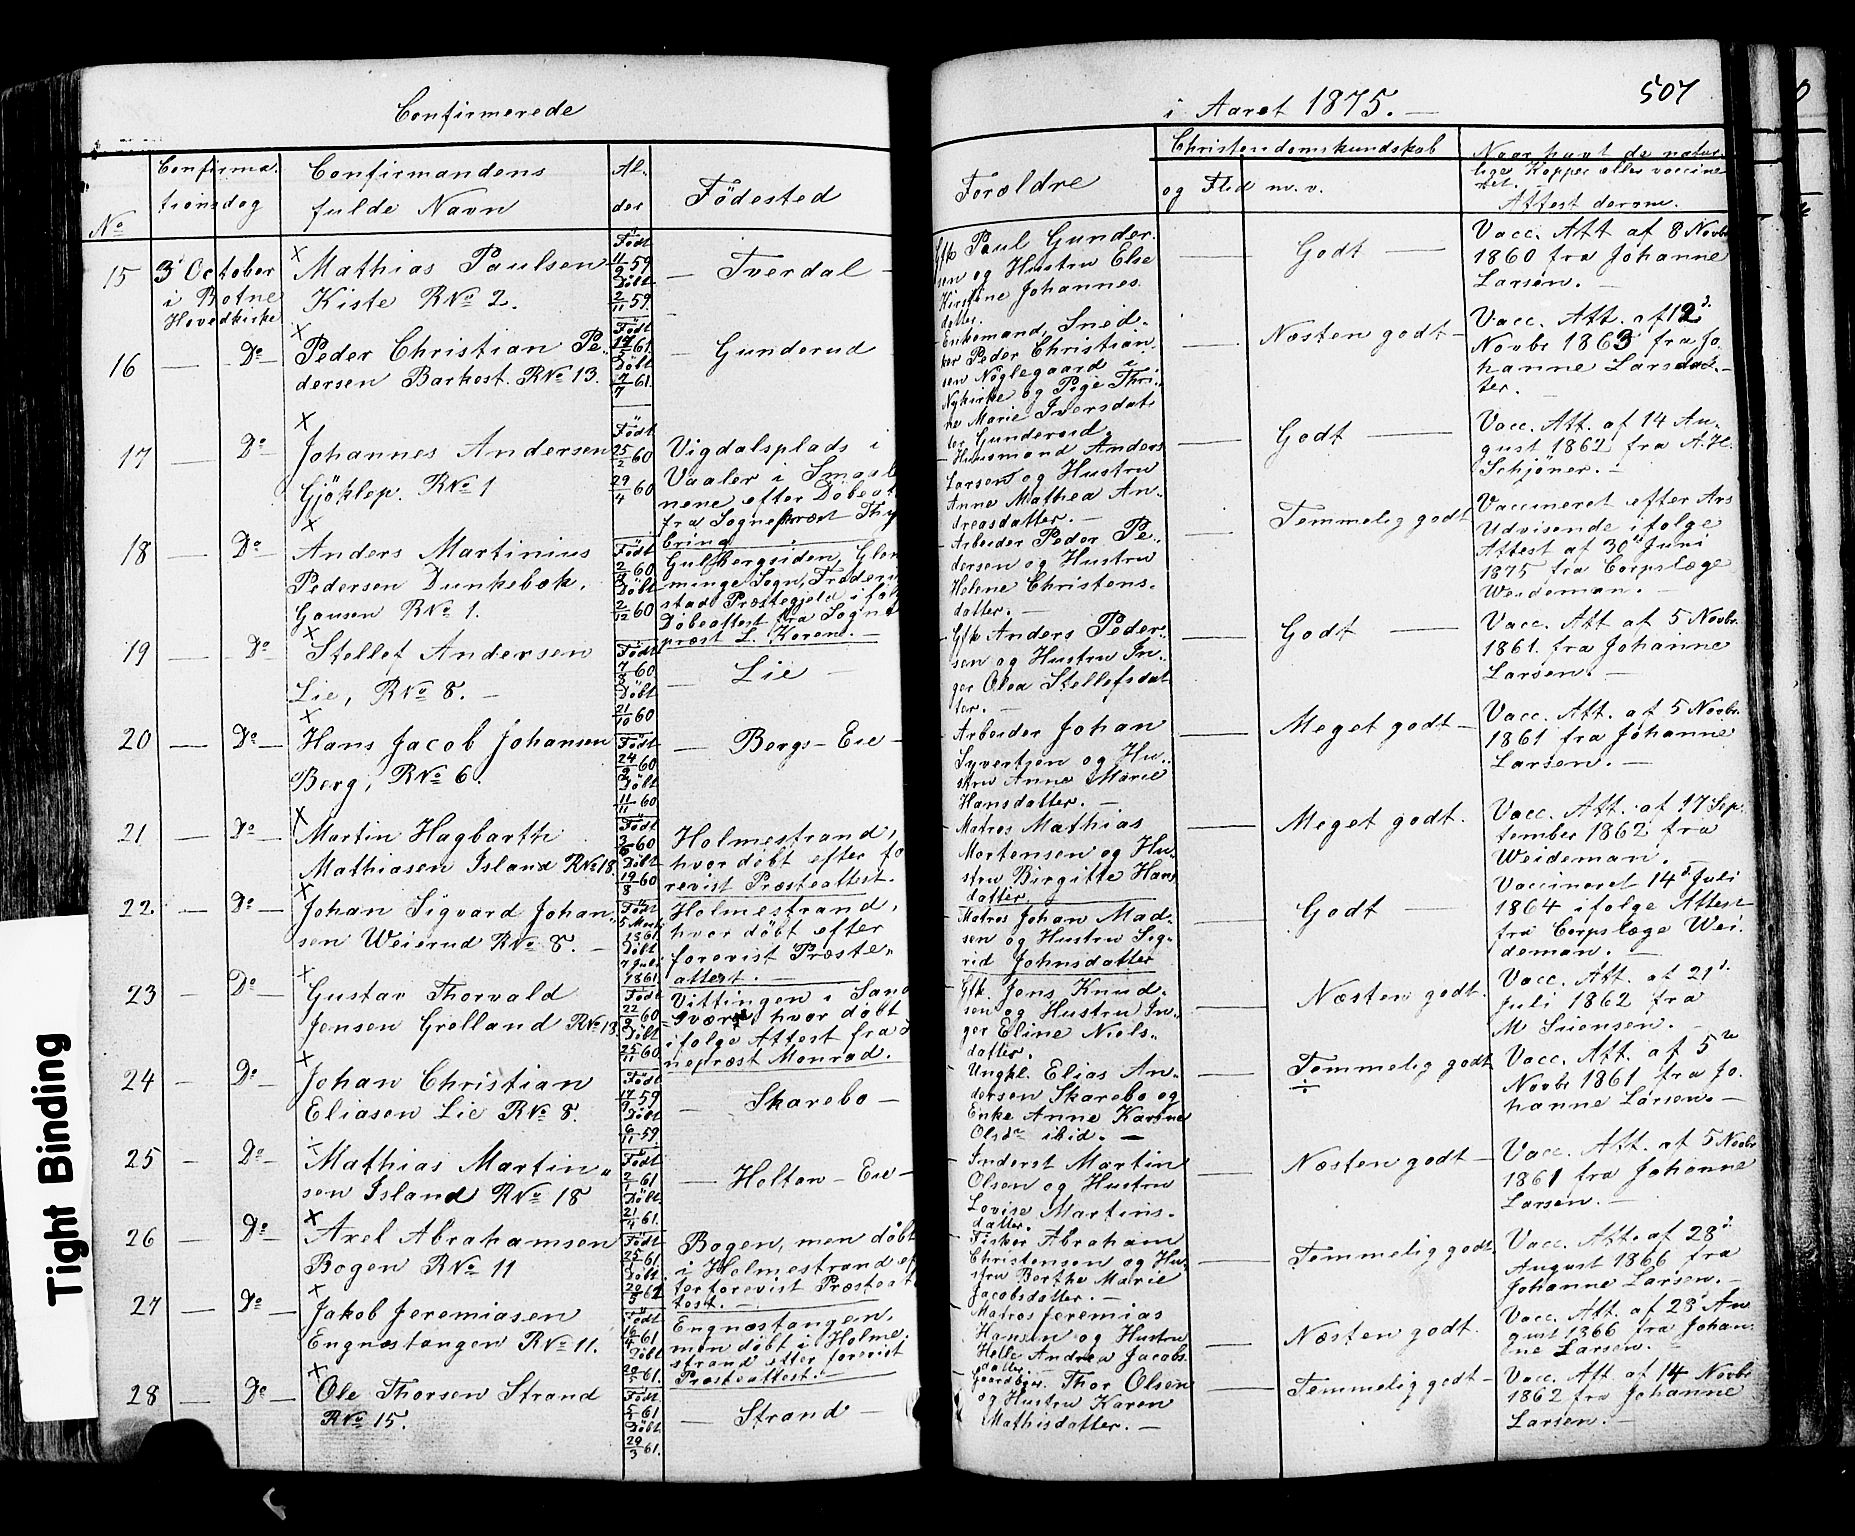 Confirmerede
i Aaret 1875. —
507
No
Confirma-
tionsdag
Confirmandens
fulde Navn
Al-
der
Fødested
Forældre
Christendomskundskab
og Flid m. v.
Naar havt de natur-
lige Kopper eller vaccine-
ret.
Attest derom.
15
3' October
i Botne
Hovedkirke
× Mathias Paulsen
Kiste RNo 2.
Født
11/9 59
Døbt
2/11 59.
— Tverdal —
Gfk Paul Gunder-
sen og Hustru Else
Kirstine Johannes-
datter.
— Godt —
Vacc. Att af 8 Novbr
1860 fra Johanne
Larsen. —
16 — Do —
× Peder Christian Pe-
dersen Barkost. RNo 13.
Født
14/5 61.
Døbt
7/7 61.
— Gunderud
Enkemand, Sned-
ker Peder Christian-
sen Nøglegaard i
Nykirke og Pige Thri-
ne Marie Iversdat-
ter Gunderud.
— Næsten godt —
Vacc. Att. af 12 d.
Novbr 1863 fra Jo-
hanne Larsdat-
ter.
17 — Do —
× Johannes Andersen
Gjöklep. RNo 1
Født
25/2 60
29/4 60
Vigdalsplads i
Vaaler i Smaale
nene efter Døbeatt
fra Sognepræst Thy
bring
— Husmand Anders
Larsen og Hustru
Anne Mathea An-
dreasdatter. —
— Godt —
Vacc. Att. af 14 Au-
gust 1862 fra A. H.
Schjöner. —
18 — Do —
× Anders Martinius
Pedersen Dunkebæk,
Gausen RNo 1.
Født
2/8 60
Døbt
2/12 60
Gulbergsiden, Glem
minge Sogn, Frederik
stad Præstegjeld ifølg
Døbeattest fra Sogne
præst L. Koren. —
Arbeider Peder Pe-
dersen og Hustru
Helene Christens-
datter. —
— Temmelig godt
Vaccineret efter Ars
Udvisende ifølge
Attest af 30 Juni
1875 fra Corpslæge
Weideman. —
19 — Do
× Stellef Andersen
Lie, RNo 8. —
Født
7/8 60
Døbt
21/10 60
— Lie —
Gfk Anders Peder-
sen og Hustru In-
ger Olea Stellefsdat-
ter. —
— Godt —
Vacc. Att af 5 Novbr.
1861. fra Johanne
Larsen. —
20 — Do —
× Hans Jacob Johansen
Berg, RNo 6.
Født
24/9 60
Døbt
11/11 60
— Bergs-Eie —
Arbeider Johan
Syvertsen og Hu-
stru Anne Marie
Hansdatter. —
— Meget godt —
Vacc. Att. af 5 Novbr.
1861 fra Johanne
Larsen. —
21 — Do —
× Martin Hagbarth
Mathiasen Island RNo 18.
Født
3/6 60
Døbt
19/8 60
Holmestrand,
hvor døbt efter fo
revist Præsteattest.
Matros Mathias
Mortensen og Hu-
stru Birgitte Hans
datter.
— Meget godt.
Vacc. Att. af 17 Sep-
tember 1862 fra
Weideman. —
22. — Do —
× Johan Sigvard Johan-
sen Weierud RNo 8. —
Født
5 Marts
1861
Døbt
7 Juli
1861
Holmestrand,
hvor døbt efter
forevist Præste-
attest. —
Matros Johan Mad-
sen og Hustru Sig-
rid Johnsdatter
Godt —
Vaccineret 14 d. Juli
1864 ifølge Attest
fra Corpslæge Wei-
deman. —
23 — Do —
× Gustav Thorvald
Jensen Grelland RNo 13
Født
22/9 60
Døbt
25/11 60
Vittingen i Sand
sværet, hvor døbt
ifølge Attest fra S
nepræst Monrad. —
Gfk. Jens Knud-
sen og Hustru In-
ger Eline Niels-
datter.
— Næsten godt.
Vacc. Att. af 21 d.
Juli 1862 fra
M Suensen. —
24 — Do —
× Johan Christian
Eliasen Lie RNo 8.
Født
17/9 59
Døbt
6/11 59.
— Skarebo —
Ungkl. Elias An-
dersen Skarebo og
Enke Anne Karine
Olsdr ibid. —
— Temmelig godt
÷
Vacc. Att. af 5
Novbr 1861 fra Jo-
hanne Larsen. —
25 — Do —
÷ Mathias Martin-
sen Island RNo 18
Født
2/1 61
Døbt
21/4 61.
— Holtan-Eie —
Inderst Martin
Olsen og Hustru
Lovise Martins-
datter.
— Næsten godt —
Vacc. Att. af 5 Novbr
1861 fra Johanne
Larsen. —
26 — Do —
× Axel Abrahamsen
Bogen RNo 11
Født
25/2 61.
Døbt
20/5 61
Bogen, men døbt
i Holmestrand ef
ter forevist Præsteat
test. —
Fisker Abraham
Christensen og Hu-
stru Berthe Marie
Jacobsdatter. —
— Temmelig godt.
Vacc. Att. af 28 d.
August 1866 fra
Johanne Larsen. —
27 — Do —
× Jakob Jeremiasen
Engnæstangen RNo 11.
Født
16/4 61
Døbt
20/5 61.
Engnæstangen,
men døbt i Holme-
strand efter forevist
Præsteattest. —
Matros Jeremias
Hansen og Hustru
Helle Andrea Jacobs
datter
— Næsten godt.
Vacc. Att. af 28 Au
gust 1866 fra Johan
ne Larsen. —
28 — Do —
× Ole Thorsen Strand
RNo 15.
Født
5/1 61
Døbt
29/3 61.
— Strand —
Gaardbr. Thor Olsen
og Hustru Karen
Mathisdatter. —
— Temmelig godt —
Vacc. Att. af 14 Novbr
1862 fra Johanne
Larsen. —
Tight Binding